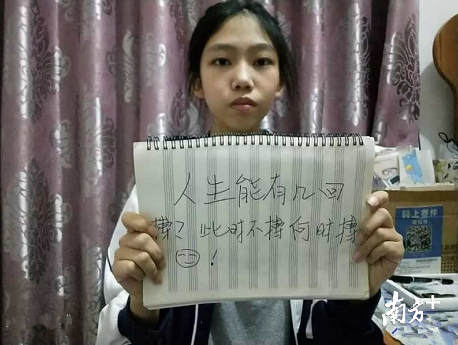 人生能有几回
搏？此时不搏何时搏
！
码上查件
南方+